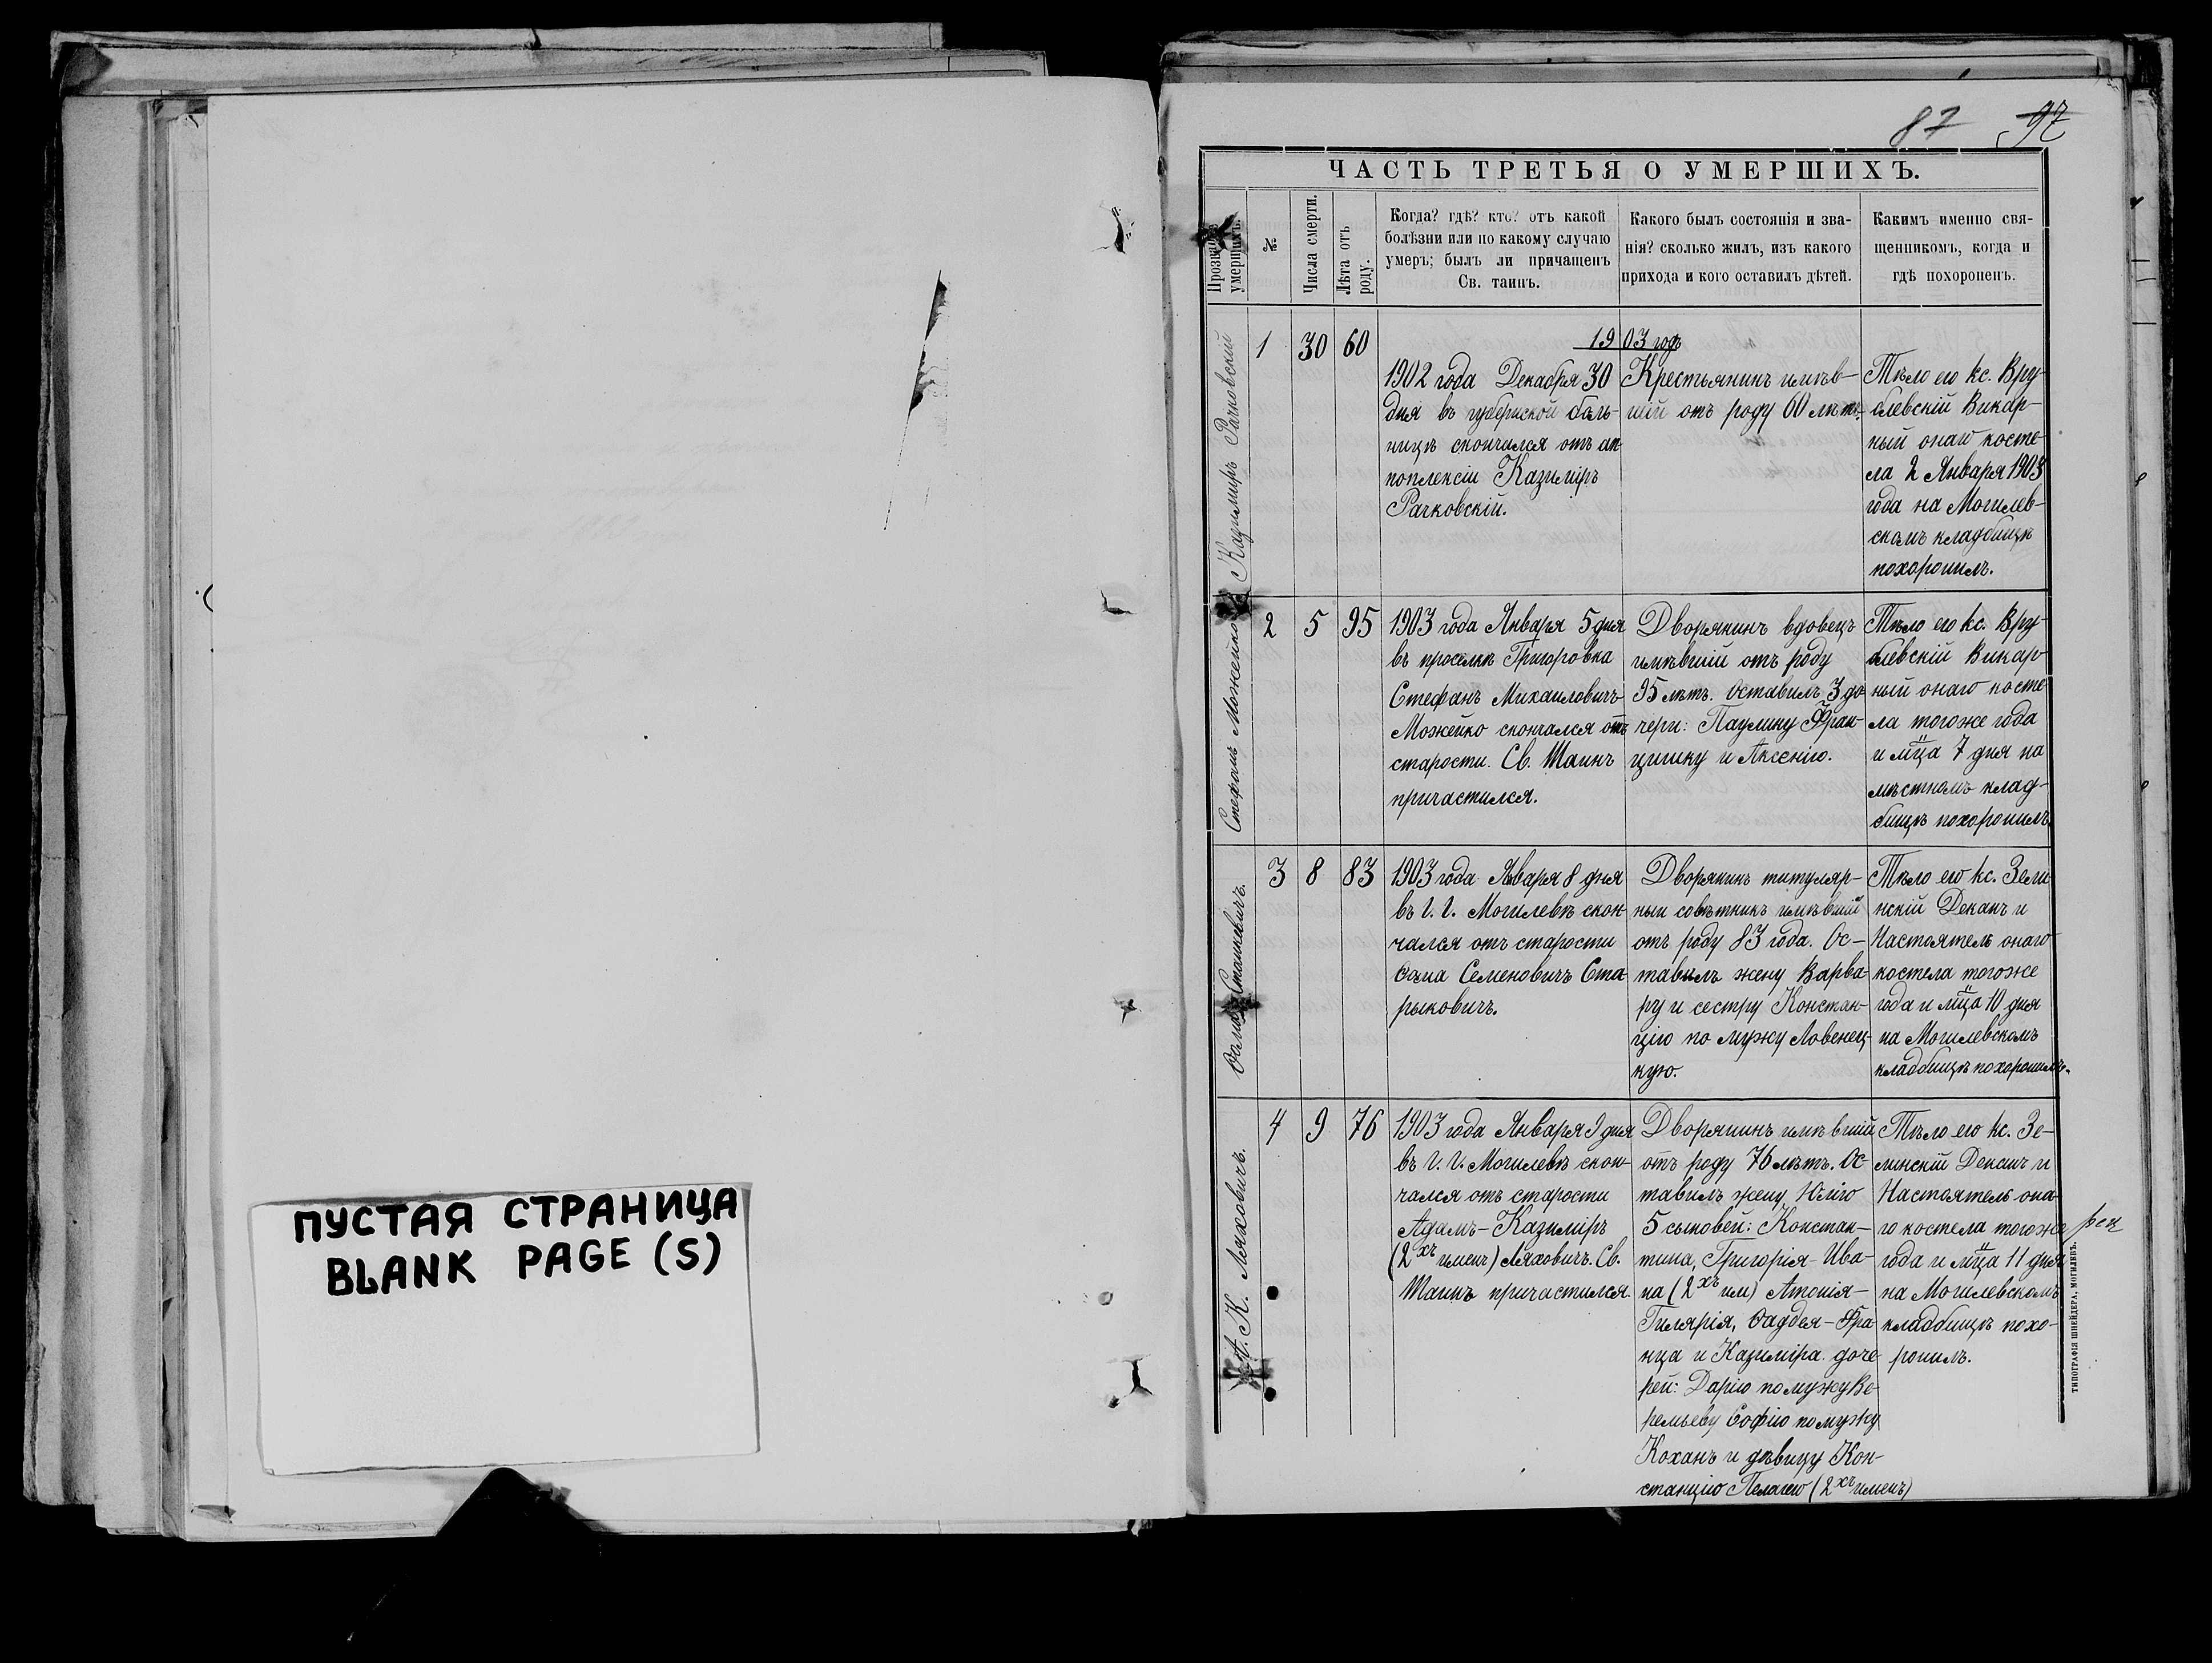 ПУСТАЯ СТРАНИЦА
BLANK PAGE (S)
87 97
ЧАСТЬ ТРЕТЬЯ О УМЕРШИХЪ.
умершихъ.
№.
Числа смерти.
Лѣта отъ
роду.
Когда? гдѣ? кто? отъ какой
болѣзни или по какому случаю
умеръ; былъ ли причащенъ
Св. таинъ.
Какого былъ состоянія и зва-
нія? сколько жилъ, изъ какого
прихода и кого оставилъ дѣтей.
Какимъ именно свя-
щенникомъ, когда и
гдѣ похороненъ.
1903 годъ
Казимиръ Рачковскій
1
30
60
1902 года Декабря 30
дня въ губернской боль-
ницѣ скончался отъ ап-
поплексіи Казиміръ
Рачковскій.
Крестьянинъ имѣв-
шій отъ роду 60 лѣтъ.
Тѣло его кс. Вру-
блевскій Викар-
ный онаго косте-
ла 2 Января 1903
года на Могилев-
скомъ кладбищѣ
похоронилъ.
Стефанъ Можейко
2
5
95
1903 года Января 5 дня
въ проселкѣ Григоровка
Стефанъ Михаиловичъ
Можейко скончался отъ
старости. Св. Таинъ
причастился.
Дворянинъ вдовецъ
имѣвшій отъ роду
95 лѣтъ. Оставилъ 3 до
чери: Паулину Фран-
цишку и Аксенію.
Тѣло его кс. Вру-
блевскій Викар
ный онаго косте
ла тогоже года
и мца 7 дня на
мѣстномъ клад-
бищѣ похоронилъ.
3
8
83
1903 года Января 8 дня
въ г. г. Могилевѣ скон-
чался отъ старости
Ѳома Семеновичъ Ста
рыковичъ.
Дворянинъ титуляр-
ный совѣтникъ имѣвшій
отъ роду 83 года. Ос-
тавилъ жену Варва-
ру и сестру Констан-
цію по мужу Ловенец-
кую.
Тѣло его кс. Зели
нскій Деканъ и
Настоятель онаго
костела тогоже
года и мца 10 дня
на Могилевскомъ
кладбищѣ похоронилъ.
А. К. Ляховичъ.
4
9
76
1903 года Января 9 дня
въ г. г. Могилевѣ скон-
чался отъ старости
Адамъ-Казиміръ
(2хъ именъ) Ляховичъ. Св.
Таинъ причастился.
Дворянинъ имѣвшій
отъ роду 76 лѣтъ. Ос-
тавилъ жену Юлію
5 сыновей: Констан-
тина, Григорія-Ива-
на (2хъ им) Атонія-
Гилярія, Ѳаддея-Фра-
нца и Казиміра. доче-
рей: Дарію по мужу Ве-
ремьеву Софію по мужу
Коханъ и дѣвицу Кон-
станцію Пелагею (2хъ именъ)
Тѣло его кс. Зе-
линскій Деканъ и
Настоятель она-
го костела тогоже
года и мца 11 дня
на Могилевскомъ
кладбищѣ похо-
ронилъ.
ТИПОГРАФІЯ ШНЕЙДЕРА, МОГИЛЕВЪ.